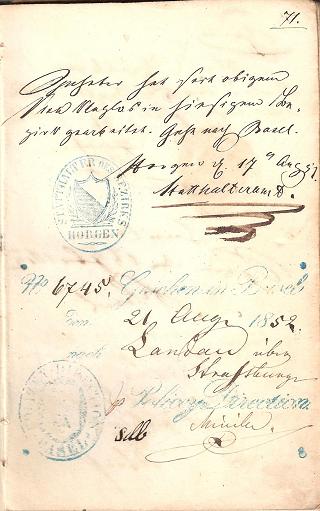 71.
Inhaber hat seit obigem
Visa klaglos in hiesigem Be-
zirk gearbeitet. Geht nach Basel.
Horgen d. 17 Aug.
Statthalteramt.
STATTHALTER DES BEZIRKS
HORGEN
No 6745. Gesehen in Basel
Den 21 Aug. 1852.
nach Landau über
Straßburg
Polizey-Direction